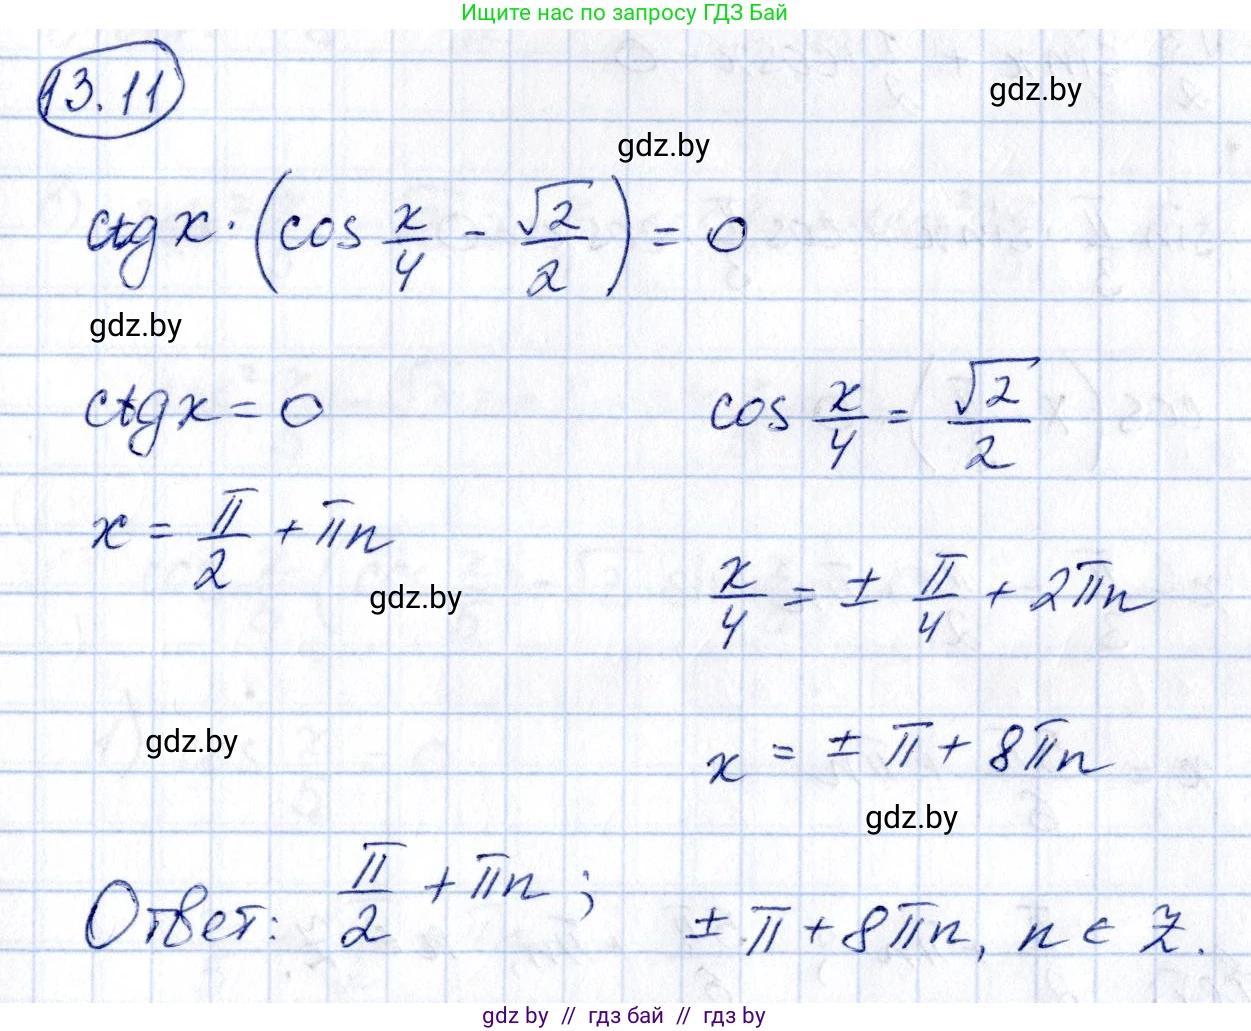 Ищите нас по запросу ГДЗ Бай
13.11
gdz.by
gdz.by
ctg x · (cos x/4 - √2/2) = 0
gdz.by
ctg x = 0
cos x/4 = √2/2
x = π/2 + πn
x/4 = ± π/4 + 2πn
gdz.by
gdz.by
x = ± π + 8πn
gdz.by
Ответ: π/2 + πn; ± π + 8πn, n ∈ Z.
gdz by // гдз бай // гдз by